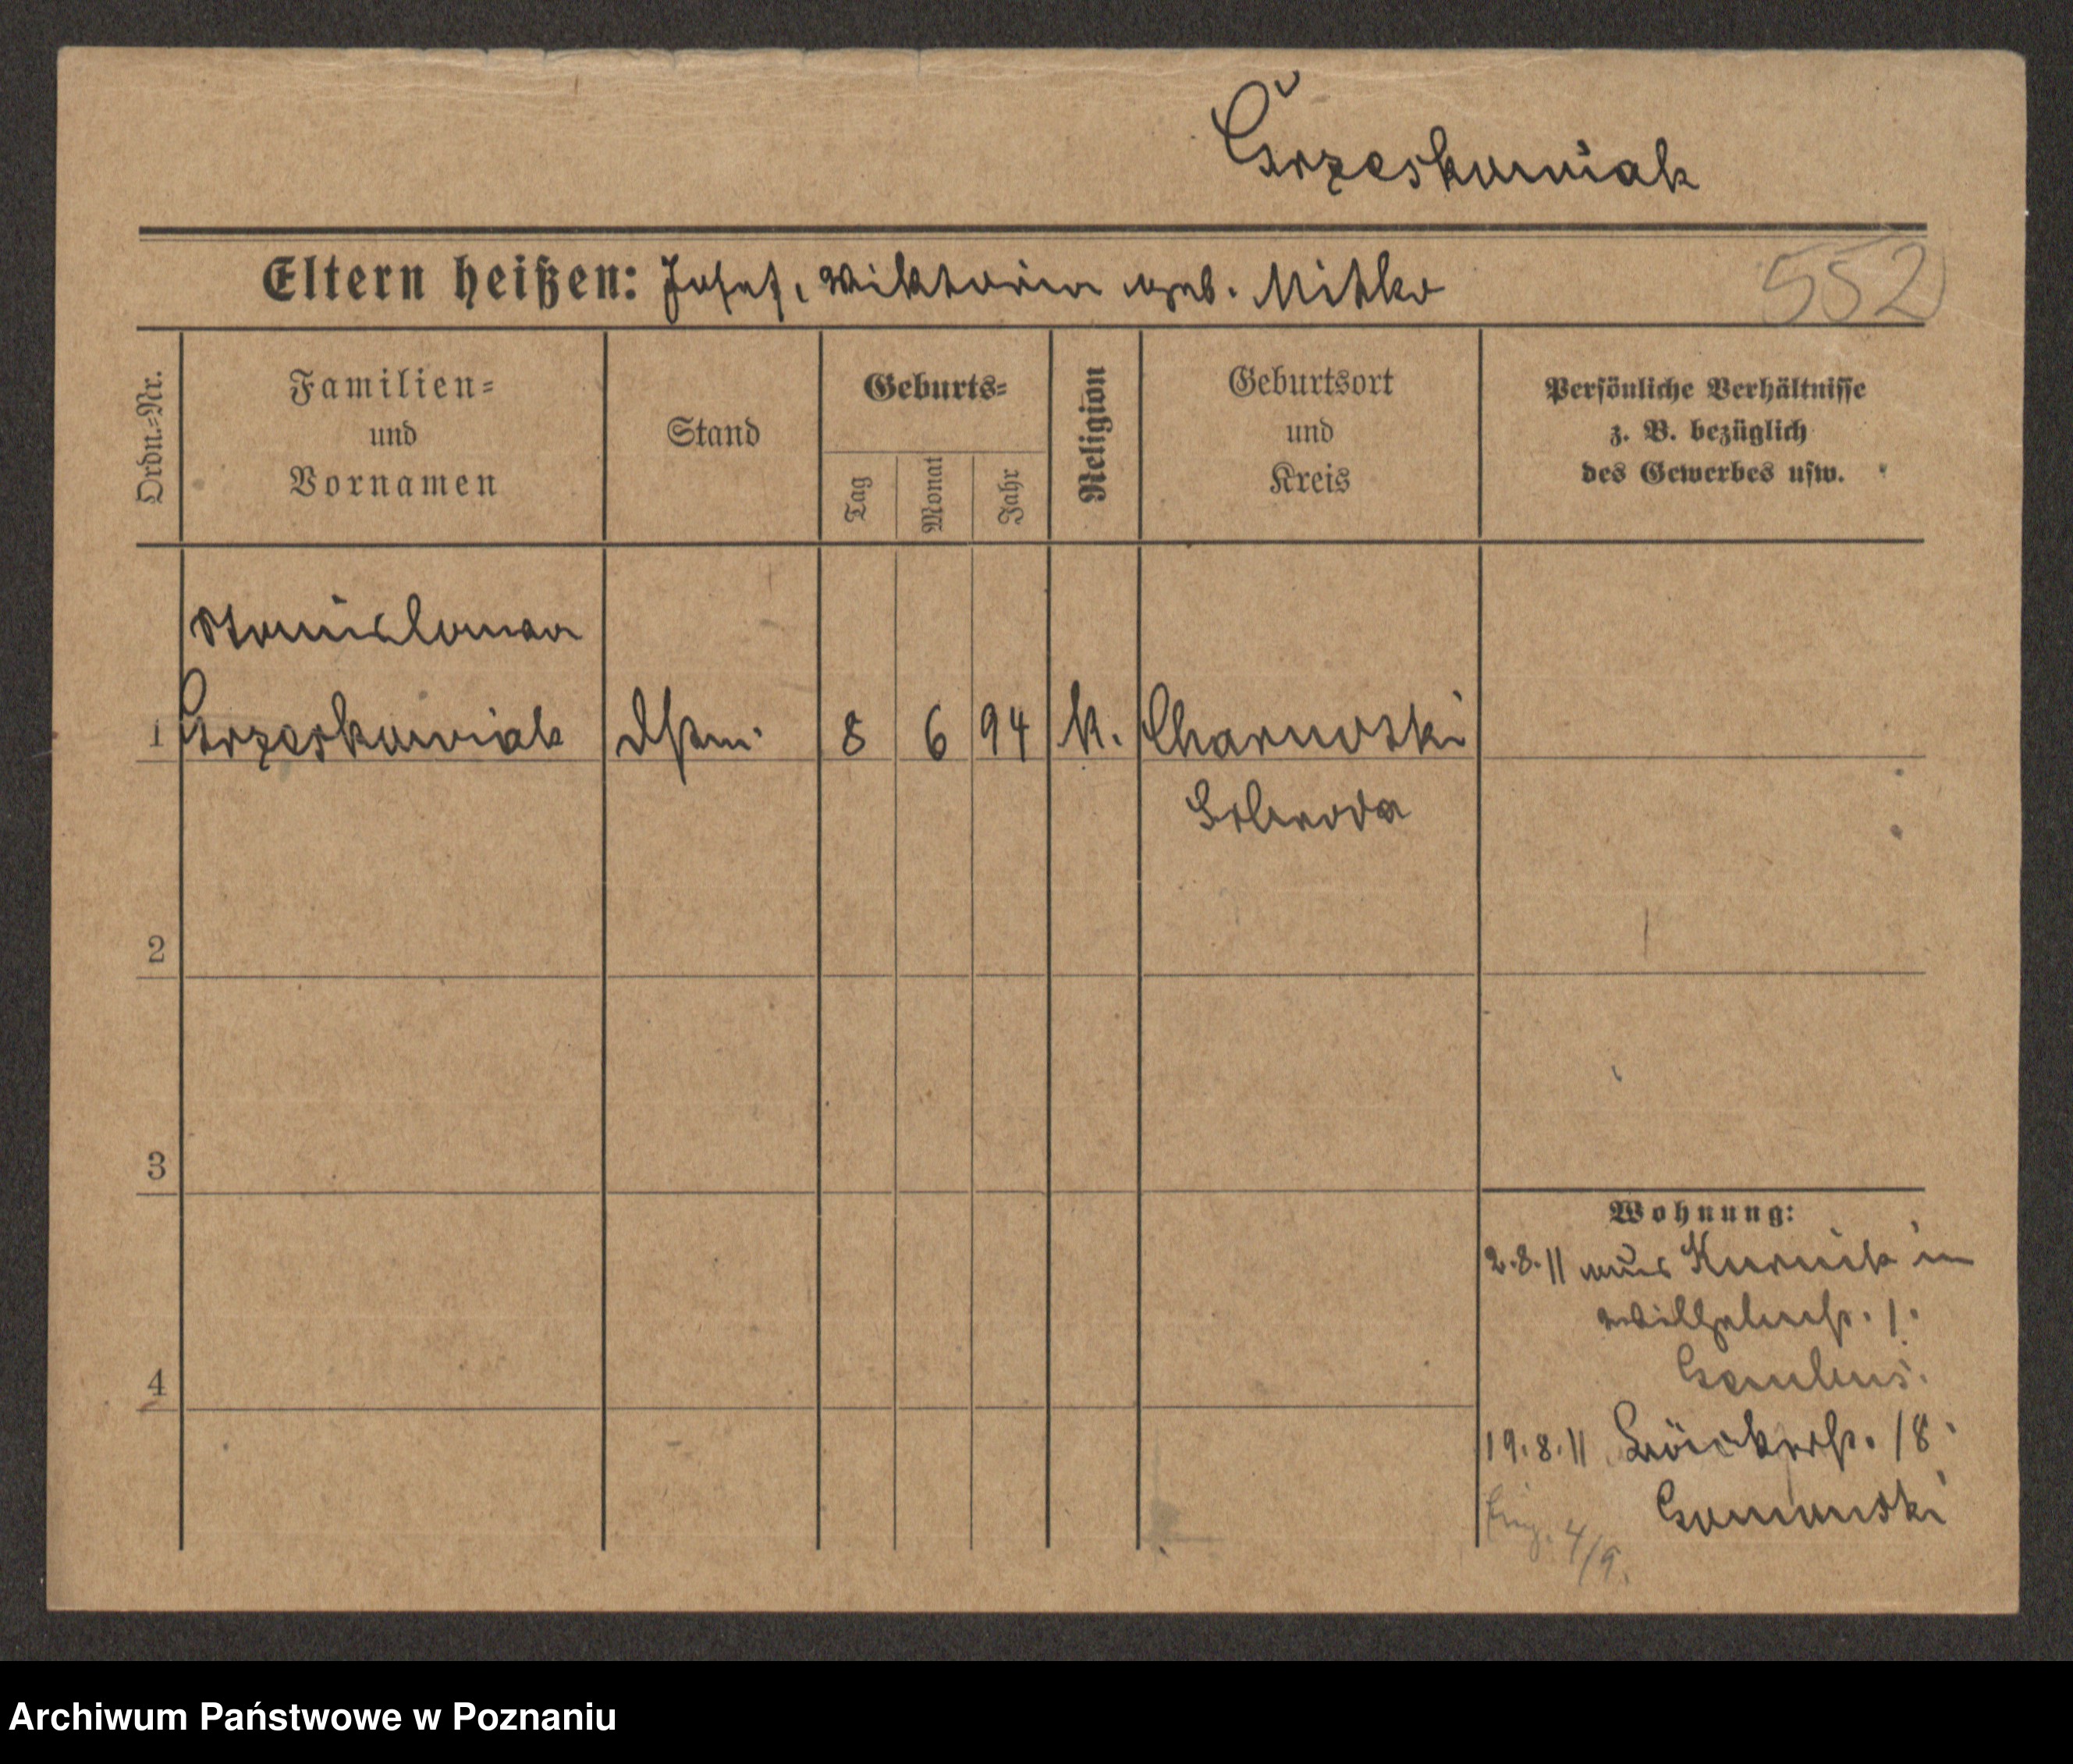 Grzeskowiak
Eltern heißen: Josef, Wiktoria geb. Mitko
552
Ordn.-Nr.
Familien-
und
Vornamen
Stand
Geburts-
Tag
Monat
Jahr
Religion
Geburtsort
und
Kreis
Persönliche Verhältnisse
z. B. bezüglich
des Gewerbes usw.
Stanislawa
1 Grzeskowiak Dstm. 8 6 94 k. Charnotki
Schroda
2
3
4
Wohnung:
2.8.11 aus Kurnik in
Wilhelmstr. 1.
19.8.11 18
4/9.
Archiwum Państwowe w Poznaniu